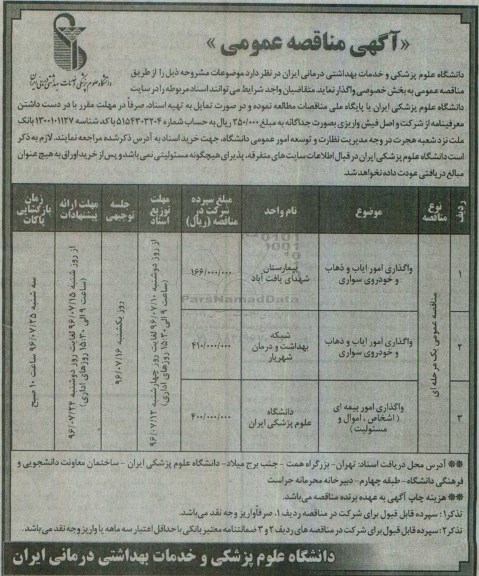 «آگهی مناقصه عمومی»
دانشگاه علوم پزشکی و خدمات بهداشتی درمانی ایران
دانشگاه علوم پزشکی و خدمات بهداشتی درمانی ایران در نظر دارد موضوعات مشروحه ذیل را از طریق
مناقصه عمومی به بخش خصوصی واگذار نماید متقاضیان واجد شرایط می توانند اسناد مربوطه را در سایت
دانشگاه علوم پزشکی ایران یا پایگاه ملی مناقصات مطالعه نموده و در صورت تمایل به تهیه اسناد، صرفاً در مهلت مقرر با در دست داشتن
معرفینامه از شرکت و اصل فیش واریزی بصورت جداگانه به مبلغ ۲۵۰/۰۰۰ ریال به حساب شماره ۵۱۵۴۳۰۳۲۰۴ با کد شناسه ۱۳۰۰۱۰۱۱۲۷ بانک
ملت نزد شعبه هجرت در وجه مدیریت نظارت و توسعه امور عمومی دانشگاه، جهت خرید اسناد به آدرس ذکر شده مراجعه نمایند. لازم به ذکر
است دانشگاه علوم پزشکی ایران در قبال اطلاعات سایت های متفرقه، پذیرای هیچگونه مسئولیتی نمی باشد و پس از خرید اوراق به هیچ عنوان
مبالغ دریافتی عودت داده نخواهد شد.
ردیف
نوع مناقصه
موضوع
نام واحد
مبلغ سپرده شرکت در مناقصه (ریال)
مهلت توزیع اسناد
جلسه توجیهی
مهلت ارائه پیشنهادات
زمان بازگشایی پاکات
۱
مناقصه عمومی یک مرحله ای
واگذاری امور ایاب و ذهاب و خودروی سواری
بیمارستان شهدای یافت آباد
۱۶۶/۰۰۰/۰۰۰
از روز دوشنبه ۹۶/۰۷/۱۰ لغایت روز چهارشنبه ۹۶/۰۷/۱۲
(ساعت ۹ الی ۱۵:۳۰ روزهای اداری)
روز یکشنبه ۹۶/۰۷/۱۶
از روز شنبه ۹۶/۰۷/۱۵ لغایت روز دوشنبه ۹۶/۰۷/۲۴
(ساعت ۹ الی ۱۵:۳۰ روزهای اداری)
سه شنبه ۹۶/۰۷/۲۵ ساعت ۱۰ صبح
۲
واگذاری امور ایاب و ذهاب و خودروی سواری
شبکه بهداشت و درمان شهریار
۴۱۰/۰۰۰/۰۰۰
۳
واگذاری امور بیمه ای (اشخاص، اموال و مسئولیت)
دانشگاه علوم پزشکی ایران
۴۰۰/۰۰۰/۰۰۰
ParsNamadData
** آدرس محل دریافت اسناد: تهران- بزرگراه همت - جنب برج میلاد- دانشگاه علوم پزشکی ایران - ساختمان معاونت دانشجویی و
فرهنگی دانشگاه - طبقه چهارم- دبیرخانه محرمانه حراست
** هزینه چاپ آگهی به عهده برنده مناقصه می باشد.
تذکر۱: سپرده قابل قبول برای شرکت در مناقصه ردیف ۱. صرفاً واریز وجه نقد می باشد.
تذکر۲: سپرده قابل قبول برای شرکت در مناقصه های ردیف ۲ و ۳ ضمانتنامه معتبر بانکی با حداقل اعتبار سه ماهه یا واریز وجه نقد می باشد.
دانشگاه علوم پزشکی و خدمات بهداشتی درمانی ایران